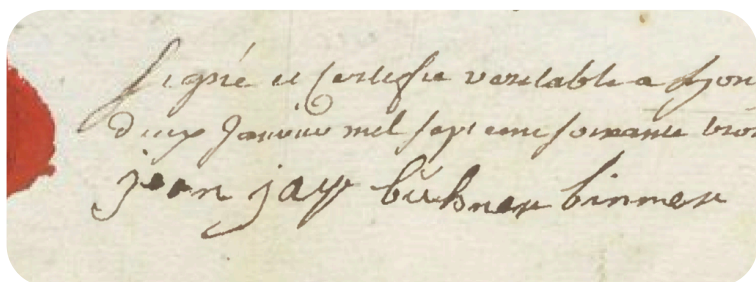 signé et Certifie veritable a Lyon
deux Janvier mil sept cent soixante trois
jean jay bühner binner